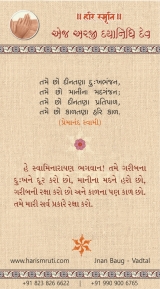 ॥ હરિ સ્મૃતિ ॥
એજ અરજી દયાનિધિ દેવ
તમે છો દીનતણા દુઃખભંજન,
તમે છો માનીના મદગંજન;
તમે છો દીનતણા પ્રતિપાળ,
તમે છો કાળતણા હરિ કાળ.
(પ્રેમાનંદ સ્વામી)
હે સ્વામિનારાયણ ભગવાન! તમે ગરીબના
દુઃખને દૂર કરો છો, માનીના મદને હરો છો,
ગરીબની રક્ષા કરો છો અને કાળના પણ કાળ છો.
તમે મારી સર્વ પ્રકારે રક્ષા કરો.
www.harismruti.com
Jnan Baug - Vadtal
+91 823 826 6622 | +91 990 900 0965